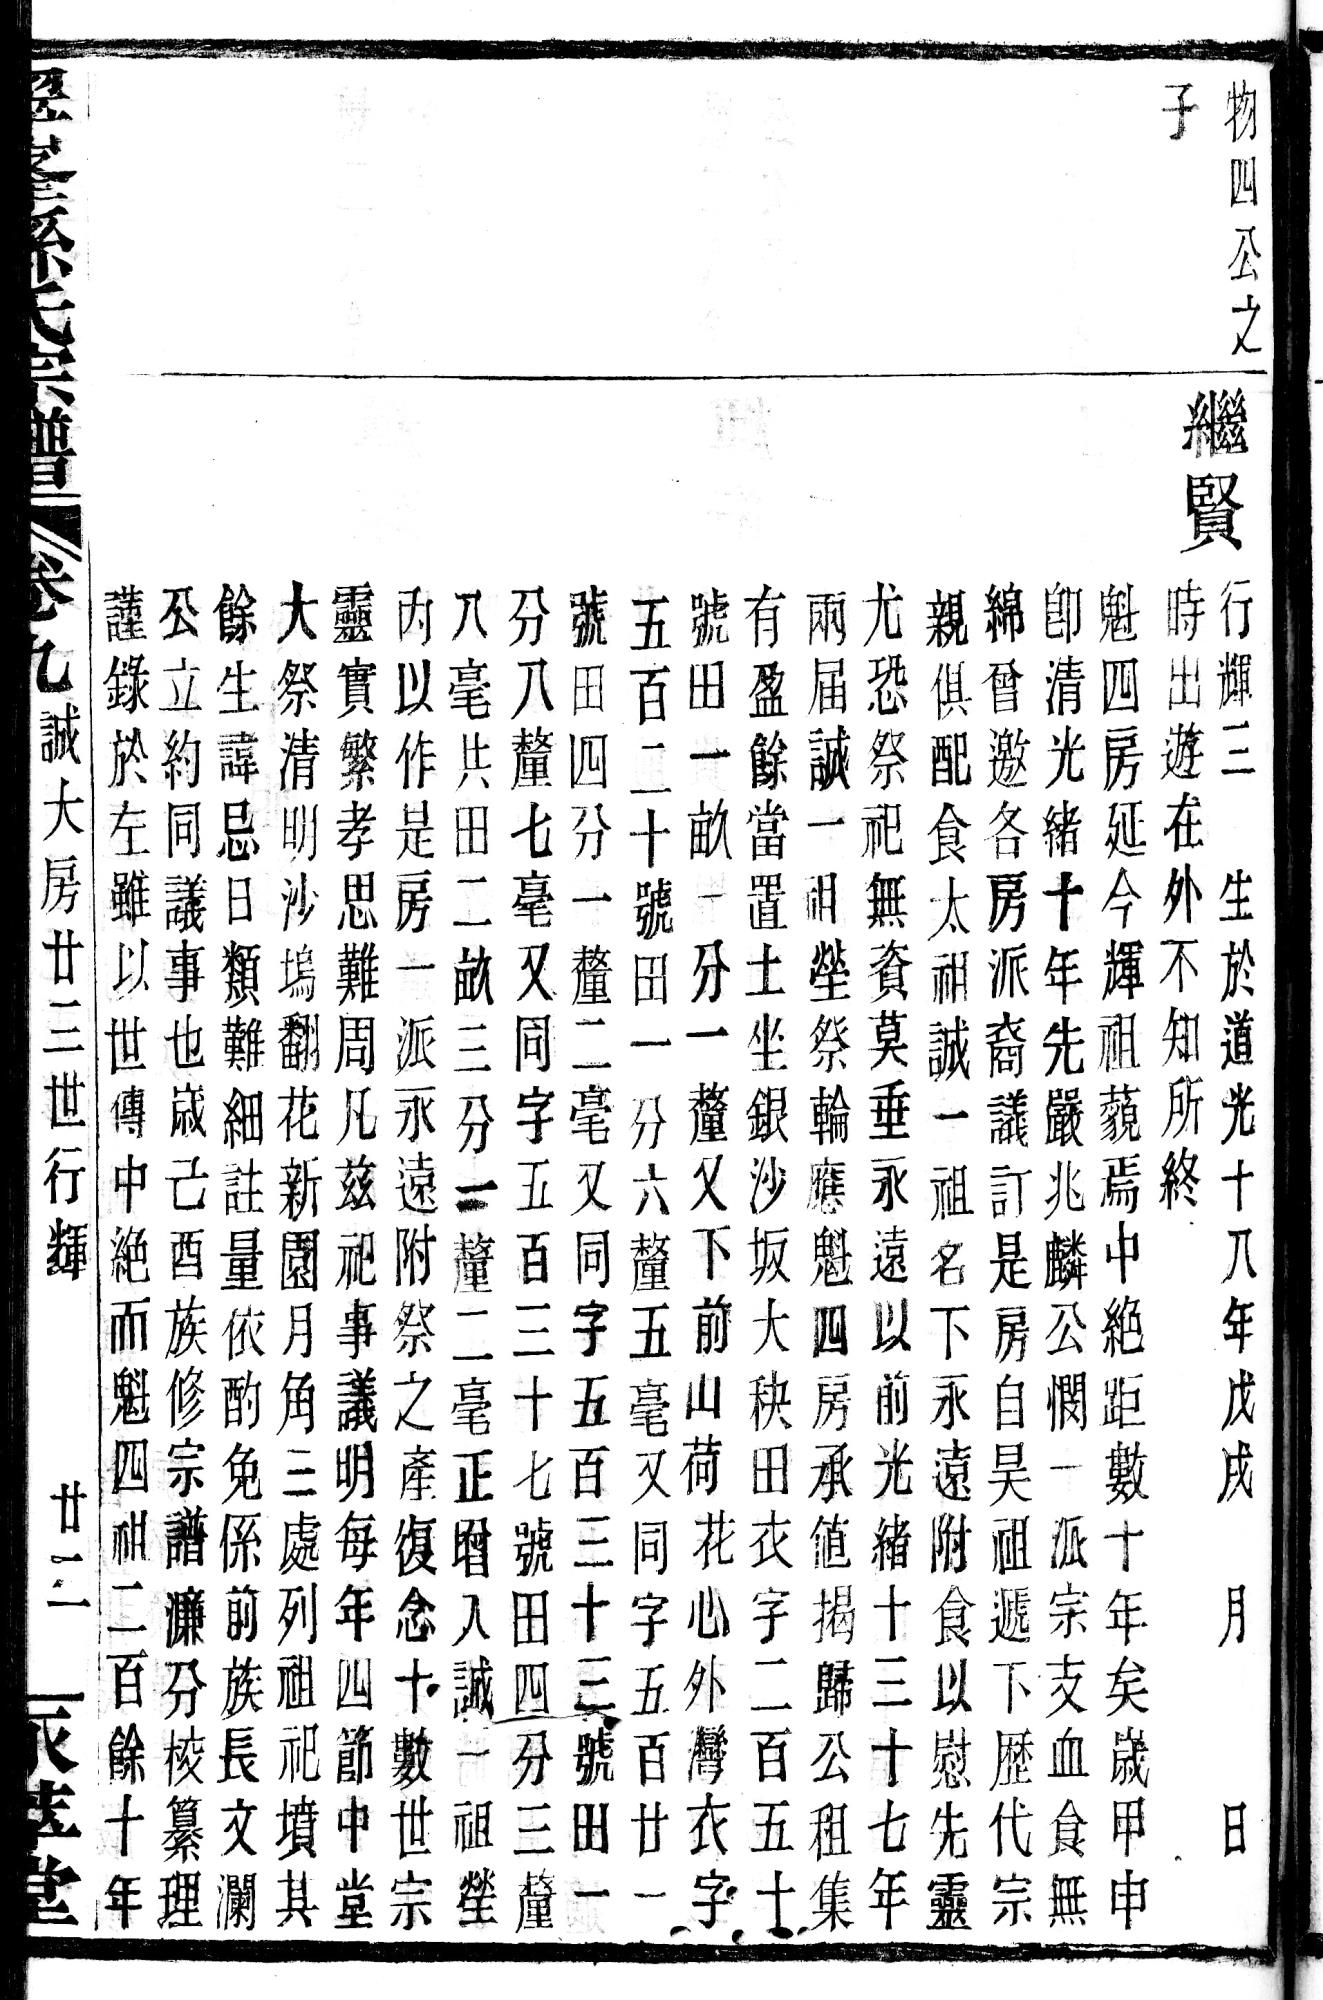 物四公之
子
繼賢
行輝三　生於道光十八年戊戌　月　日
時出遊在外不知所終
魁四房延今輝祖藐焉中絶距數十年矣歲甲申
卽清光緒十年先嚴兆麟公憫一派宗支血食無
綿曾邀各房派裔議訂是房自昊祖遞下歴代宗
親俱配食太祖誠一祖名下永遠附食以慰先靈
尤恐祭祀無資莫垂永遠以前光緒十三十七年
兩届誠一祖塋祭輪應魁四房承値揭歸公租集
有盈餘當置土坐銀沙坂大秧田衣字二百五十
號田一畝一分一釐又下前山荷花心外灣衣字
五百二十號田一分六釐五毫又同字五百廿一
號田四分一釐二毫又同字五百三十三號田一
分八釐七毫又同字五百三十七號田四分三釐
八毫共田二畝三分一釐二毫正增入誠一祖塋
內以作是房一派永遠附祭之產復念十數世宗
靈實繁孝思難周凡兹祀事議明每年四節中堂
大祭清明沙塢翻花新園月角三處列祖祀墳其
餘生諱忌日類難細註量依酌免係前族長文瀾
公立約同議事也歲己酉族修宗譜濂分校纂理
謹錄於左雖以世傳中絶而魁四祖二百餘十年
孫氏宗譜　卷九　誠大房廿三世行輝　廿二　萃堂